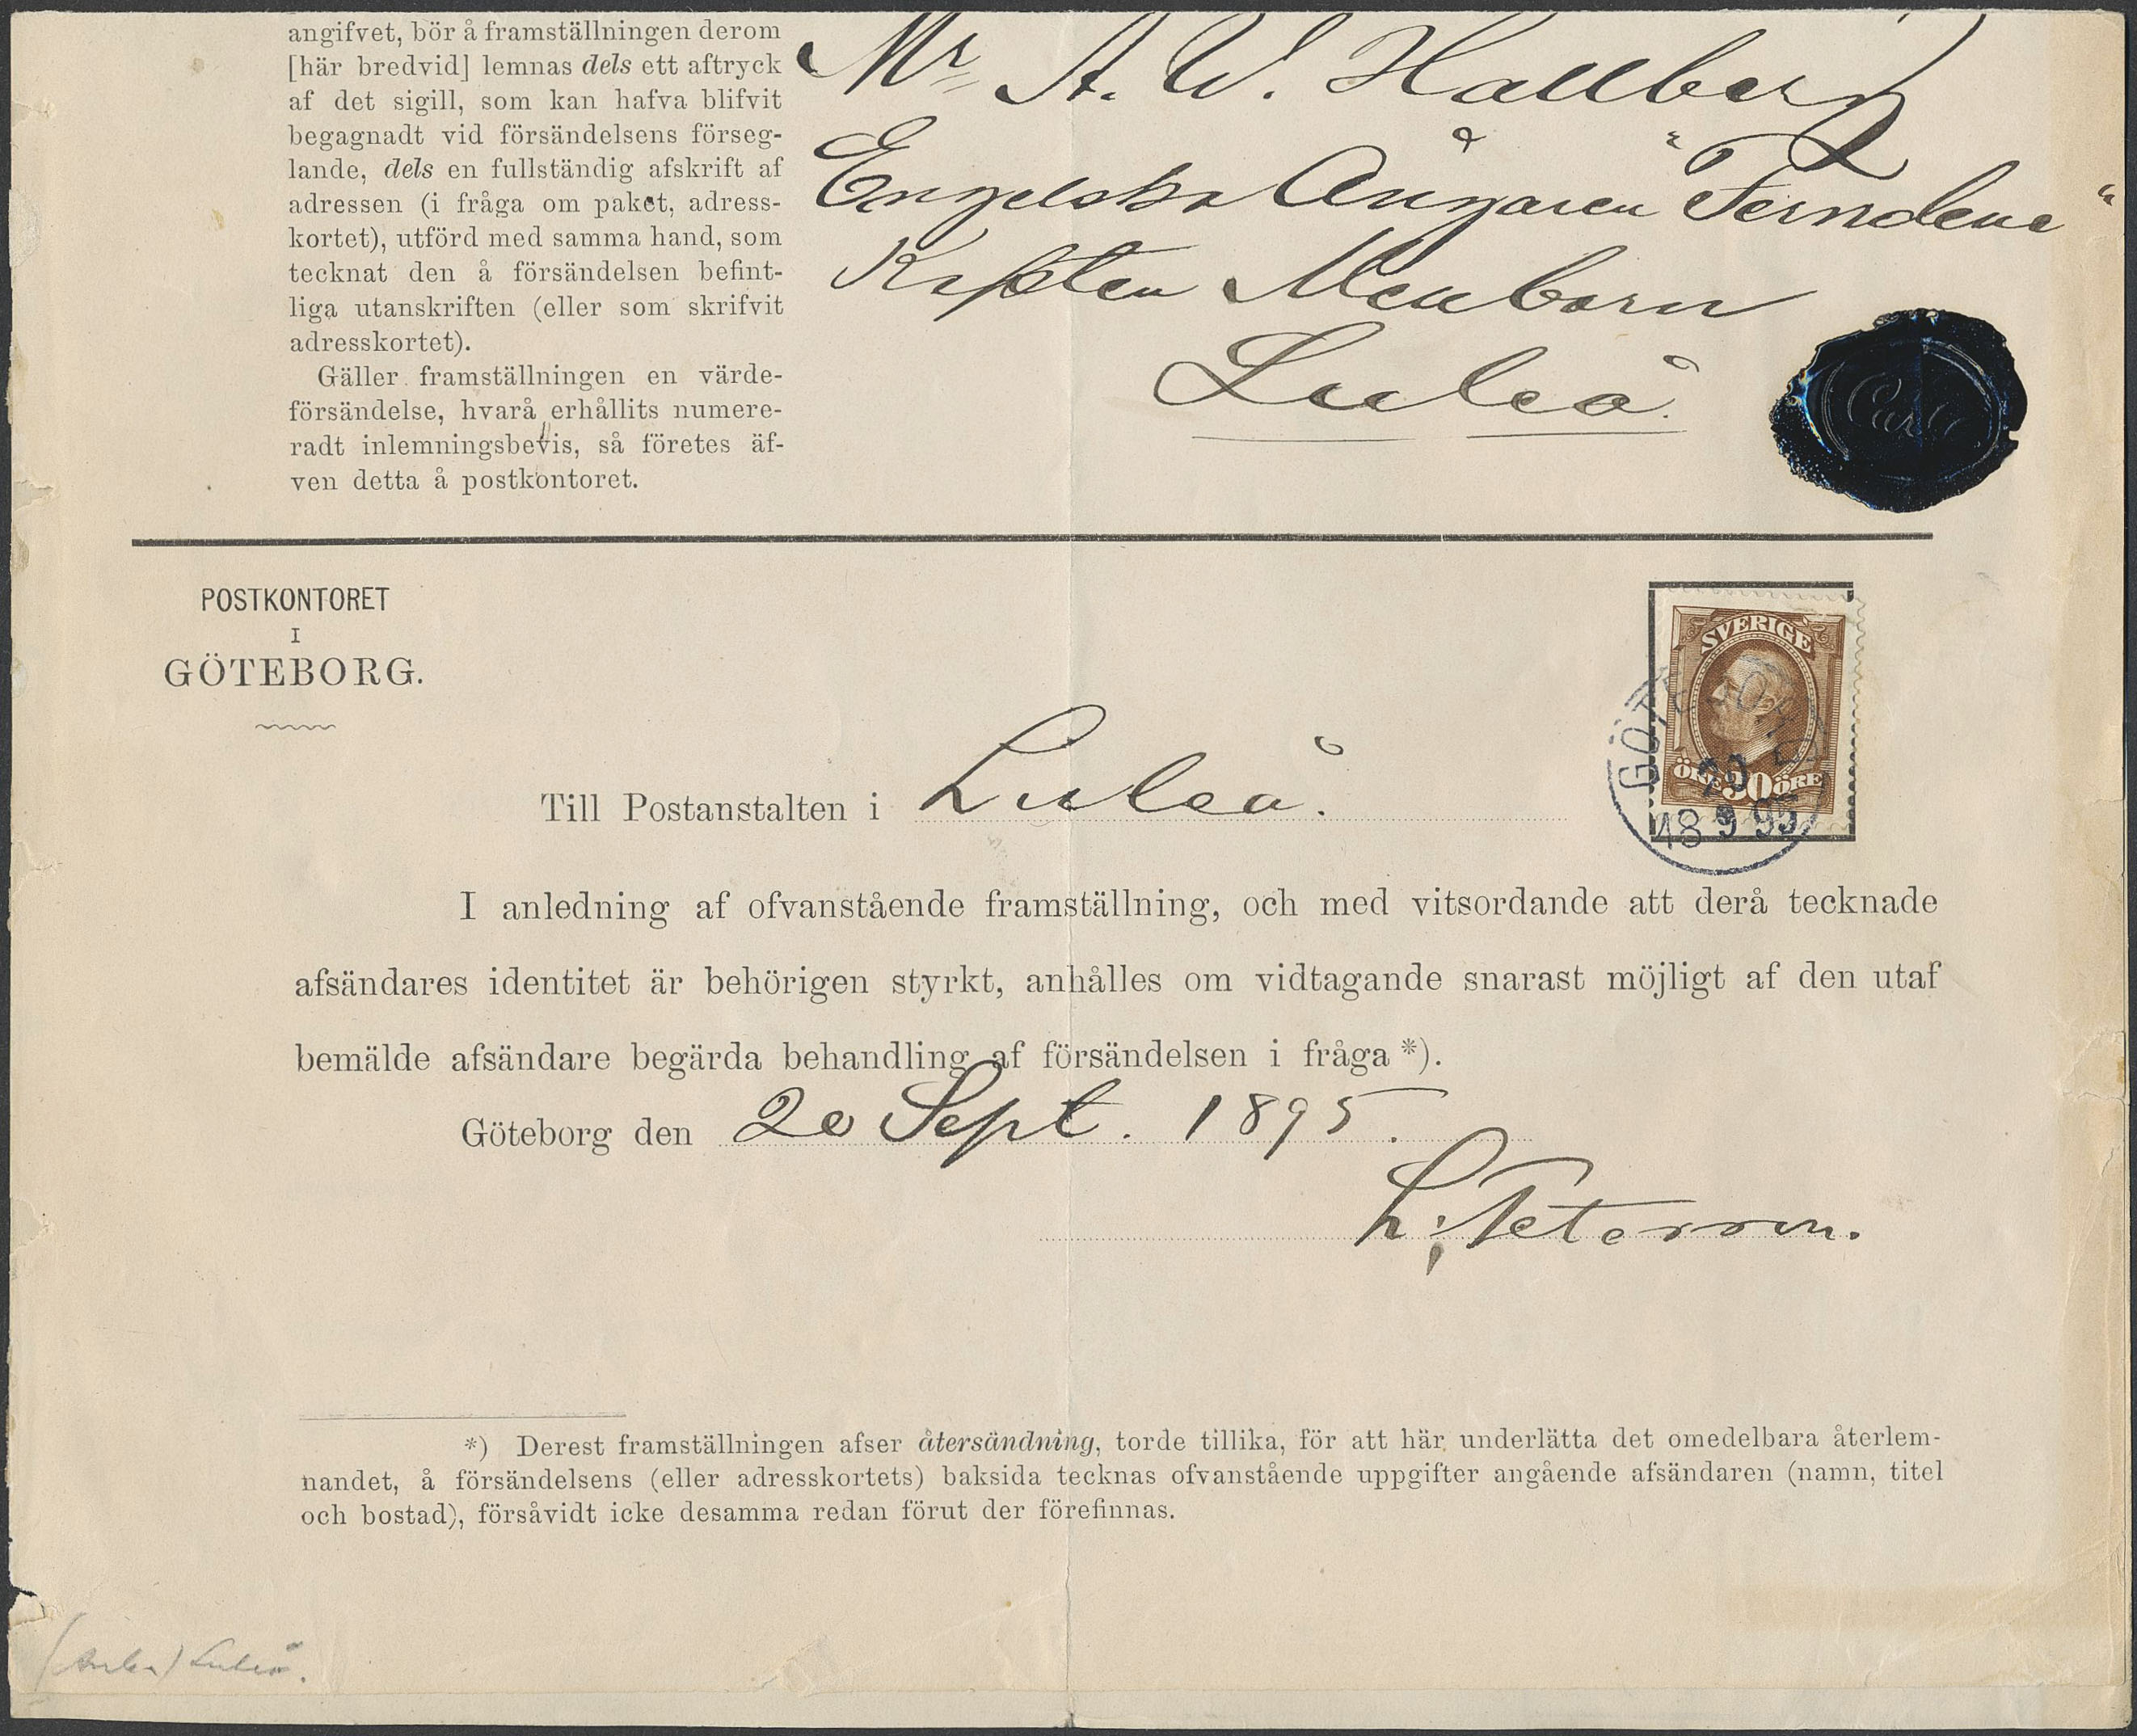 angifvet, bör å framställningen derom
[här bredvid] lemnas dels ett aftryck
af det sigill, som kan hafva blifvit
begagnadt vid försändelsens förseg-
lande, dels en fullständig afskrift af
adressen (i fråga om paket, adress-
kortet), utförd med samma hand, som
tecknat den å försändelsen befint-
liga utanskriften (eller som skrifvit
adresskortet).
Gäller framställningen en värde-
försändelse, hvarå erhållits numere-
radt inlemningsbevis, så företes äf-
ven detta å postkontoret.
Mr A. W. Hallberg
Engelska Ångaren "Ferndene"
Kapten
Luleå.
POSTKONTORET
I
GÖTEBORG.
SVERIGE
ÖRE 30 ÖRE
GÖTEBORG
20
18 9 95
Till Postanstalten i Luleå.
I anledning af ofvanstående framställning, och med vitsordande att derå tecknade
afsändares identitet är behörigen styrkt, anhålles om vidtagande snarast möjligt af den utaf
bemälde afsändare begärda behandling af försändelsen i fråga *).
Göteborg den 20 Sept. 1895.
L. Peterson.
*) Derest framställningen afser återsändning, torde tillika, för att här underlätta det omedelbara återlem-
nandet, å försändelsens (eller adresskortets) baksida tecknas ofvanstående uppgifter angående afsändaren (namn, titel
och bostad), försåvidt icke desamma redan förut der förefinnas.
Luleå.